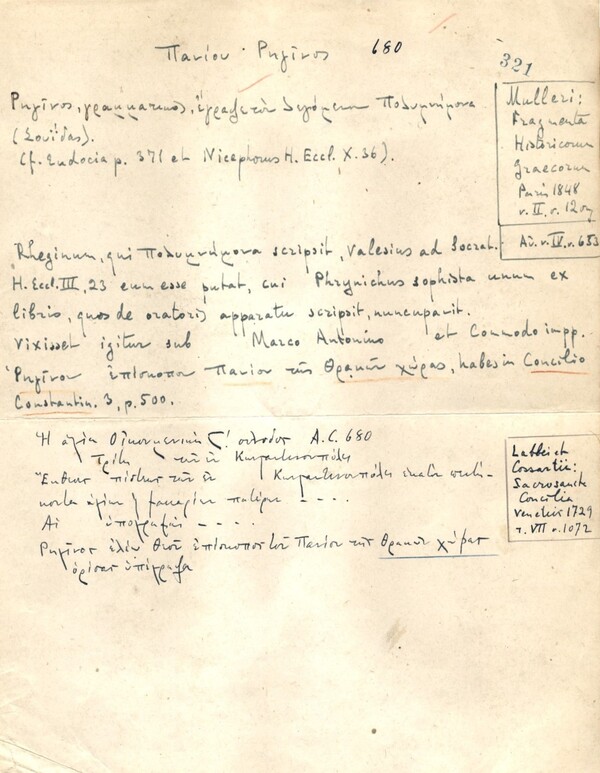 Πανίου · Ρηγῖνος 680
321
Ρηγῖνος, γραμματικός, ἔγραψε τὸν λεγόμενον Πολυμνήμονα
(Σουΐδας).
(f. Eudocia p. 371 et Nicephorus H. Eccl. X. 36).
Mulleri:
Fragmenta
Historicorum
Graecorum
Paris 1848
v. II. σ. 12
Αὐ. v. IV. σ. 653
Rheginum, qui Πολυμνήμονα scripsit, Valesius ad Socrat.
H. Eccl. III, 23 eum esse putat, cui Phrynichus sophista unum ex
libris, quos de oratoris apparatu scripsit, nuncupavit.
Vixisset igitur sub Marco Antonino et Commodo impp.
Ρηγῖνον ἐπίσκοπον Πανίου τῆς Θρακῶν χώρας, habes in Concilio
Constantin. 3, p. 500.
Ἡ ἁγία Οἰκουμενικὴ Ϛ! σύνοδος A.C. 680
Τρίτη τῶν ἐν Κωνσταντινουπόλει
Ἔκθεσις πίστεως τῶν ἐν Κωνσταντινουπόλει ἑκατὸν πεντή-
κοντα ἁγίων μακαρίων πατέρων - - - -
Αἱ ὑπογραφαί - - - -
Ρηγῖνος ἐλέῳ Θεοῦ ἐπίσκοπος τοῦ Πανίου τῆς Θρακῶν χώρας
ὁρίσας ὑπέγραψα
Labbei et
Cossartii:
Sacrosancta
Concilia
Venetiis 1729
τ. VII σ. 1072